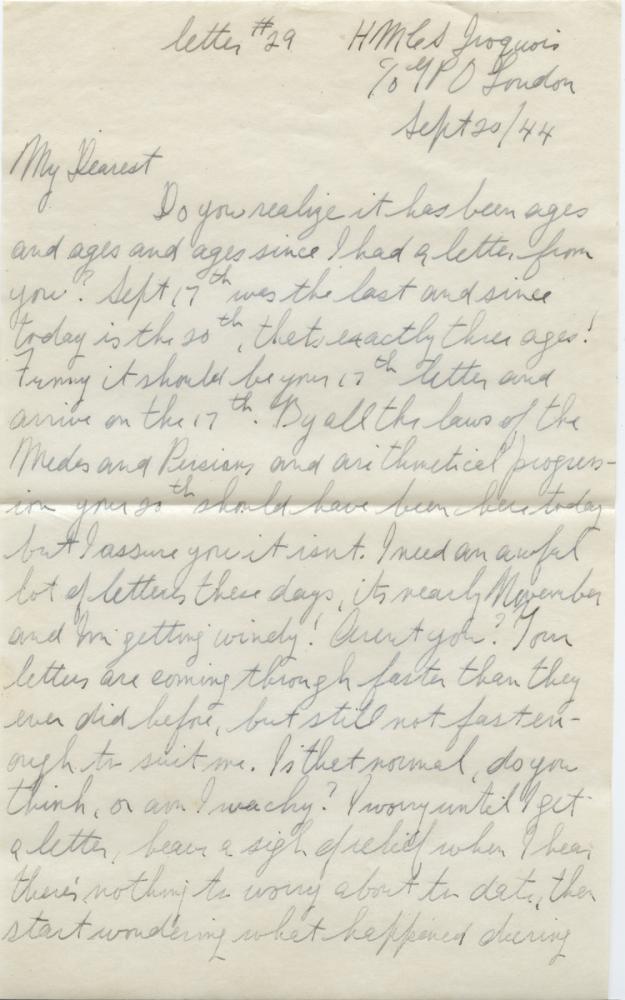 letter #29 HMCS Iroquois
c/o GPO London
Sept 20/44
My Dearest
Do you realize it has been ages
and ages and ages since I had a letter from
you? Sept 17th was the last and since
today is the 20th, thats exactly three ages!
Funny it should be your 17th letter and
arrive on the 17th. By all the laws of the
Medes and Persians and arithmetical progress-
ion your 20th should have been here today
but I assure you it isnt. I need an awful
lot of letters these days, its nearly November
and Im getting windy! Arent you? Your
letters are coming through faster than they
ever did before, but still not fast en-
ough to suit me. Is that normal, do you
think, or am I wacky? I worry until I get
a letter, heave a sigh of relief when I hear
there's nothing to worry about to date, then
start wondering what happened during